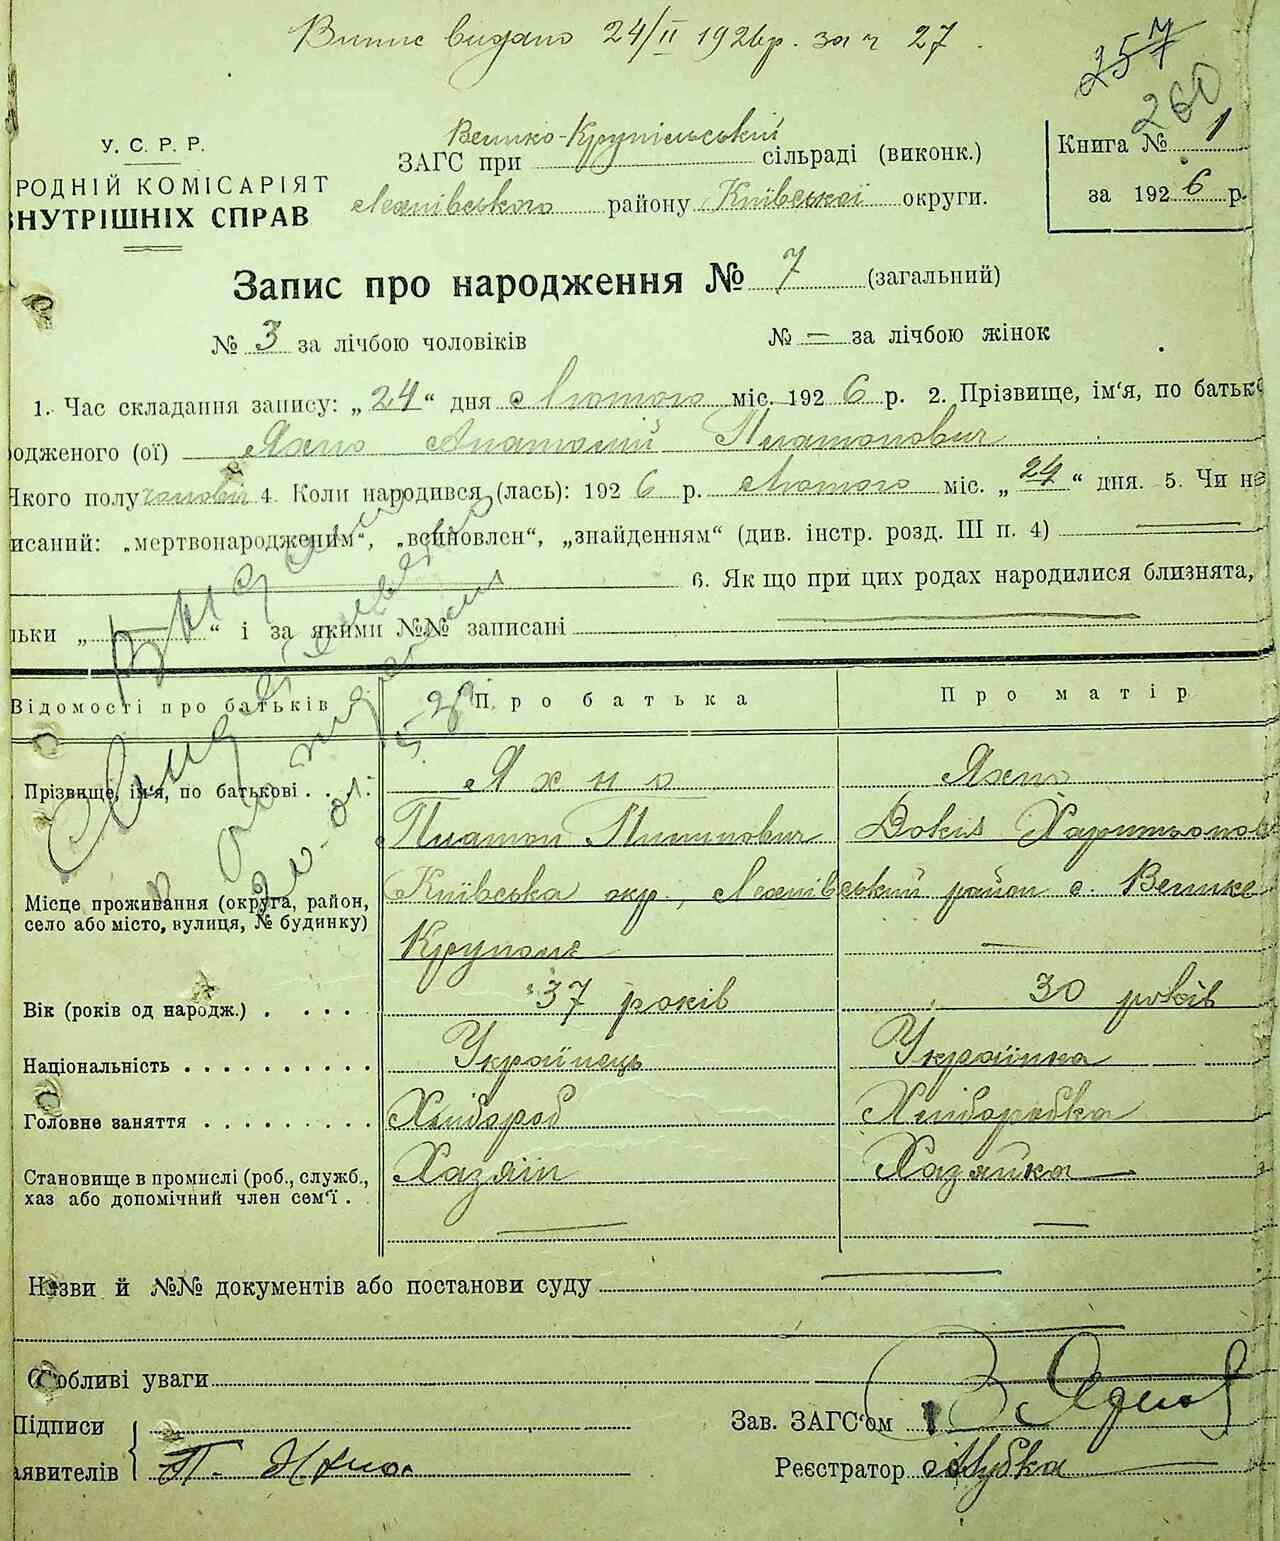 Випис видано 24/II 1926р. за ч 27.
257
260
У. С. Р. Р.
РОДНІЙ КОМІСАРІЯТ
ВНУТРІШНІХ СПРАВ
Велико-Крупільський
ЗАГС при сільраді (виконк.)
району Київської округи.
Книга № 1
за 1926 р.
Запис про народження № 7 (загальний)
№ 3 за лічбою чоловіків № — за лічбою жінок
1. Час складання запису: „24“ дня Лютого міс. 1926 р. 2. Прізвище, ім‘я, по батьк
одженого (ої) Яхно Анатолій Платонович
Якого полу чоловіч 4. Коли народився (лась): 1926 р. Лютого міс. „24“ дня. 5. Чи не
исаний: „мертвонародженим“, „всиновлен“, „знайденням“ (див. інстр. розд. III п. 4)
6. Як що при цих родах народилися близнята,
льки „ “ і за якими №№ записані
Відомості про батьків Про батька Про матір
Прізвище, ім‘я, по батькові . . . Яхно Яхно
Платон Платонович Докія Харитонов
Місце проживання (округа, район,
село або місто, вулиця, № будинку)
Київська окр., район с. Велике
Крупольє —
Вік (років од народж.) . . . . 37 років 30 років
Національність . . . . . . . . . . Українець Українка
Головне заняття . . . . . . . . . Хлібороб Хліборобка
Становище в промислі (роб., служб.,
хаз або допомічний член сем‘ї . Хазяїн Хазяйка
Назви й №№ документів або постанови суду
Особливі уваги
Підписи
аявителів П. Яхно
Зав. ЗАГС‘ом
Реєстратор